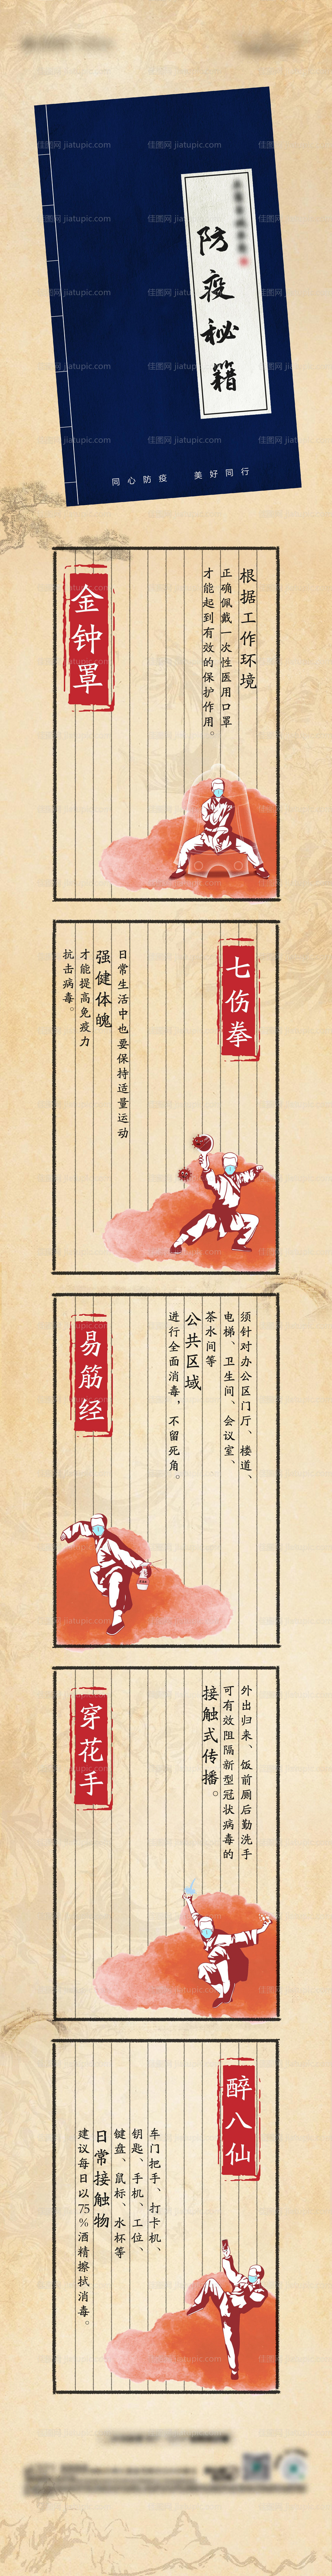 防疫秘籍
同心防疫 美好同行
金钟罩
根据工作环境
正确佩戴一次性医用口罩
才能起到有效的保护作用。
七伤拳
日常生活中也要保持适量运动
强健体魄
才能提高免疫力
抗击病毒。
易筋经
须针对办公区门厅、楼道、
电梯、卫生间、会议室、
茶水间等
公共区域
进行全面消毒，不留死角。
穿花手
外出归来、饭前厕后勤洗手
可有效阻隔新型冠状病毒的
接触式传播。
醉八仙
车门把手、打卡机、
钥匙、手机、工位、
键盘、鼠标、水杯等
日常接触物
建议每日以75%酒精擦拭消毒。
佳图网 jiatupic.com